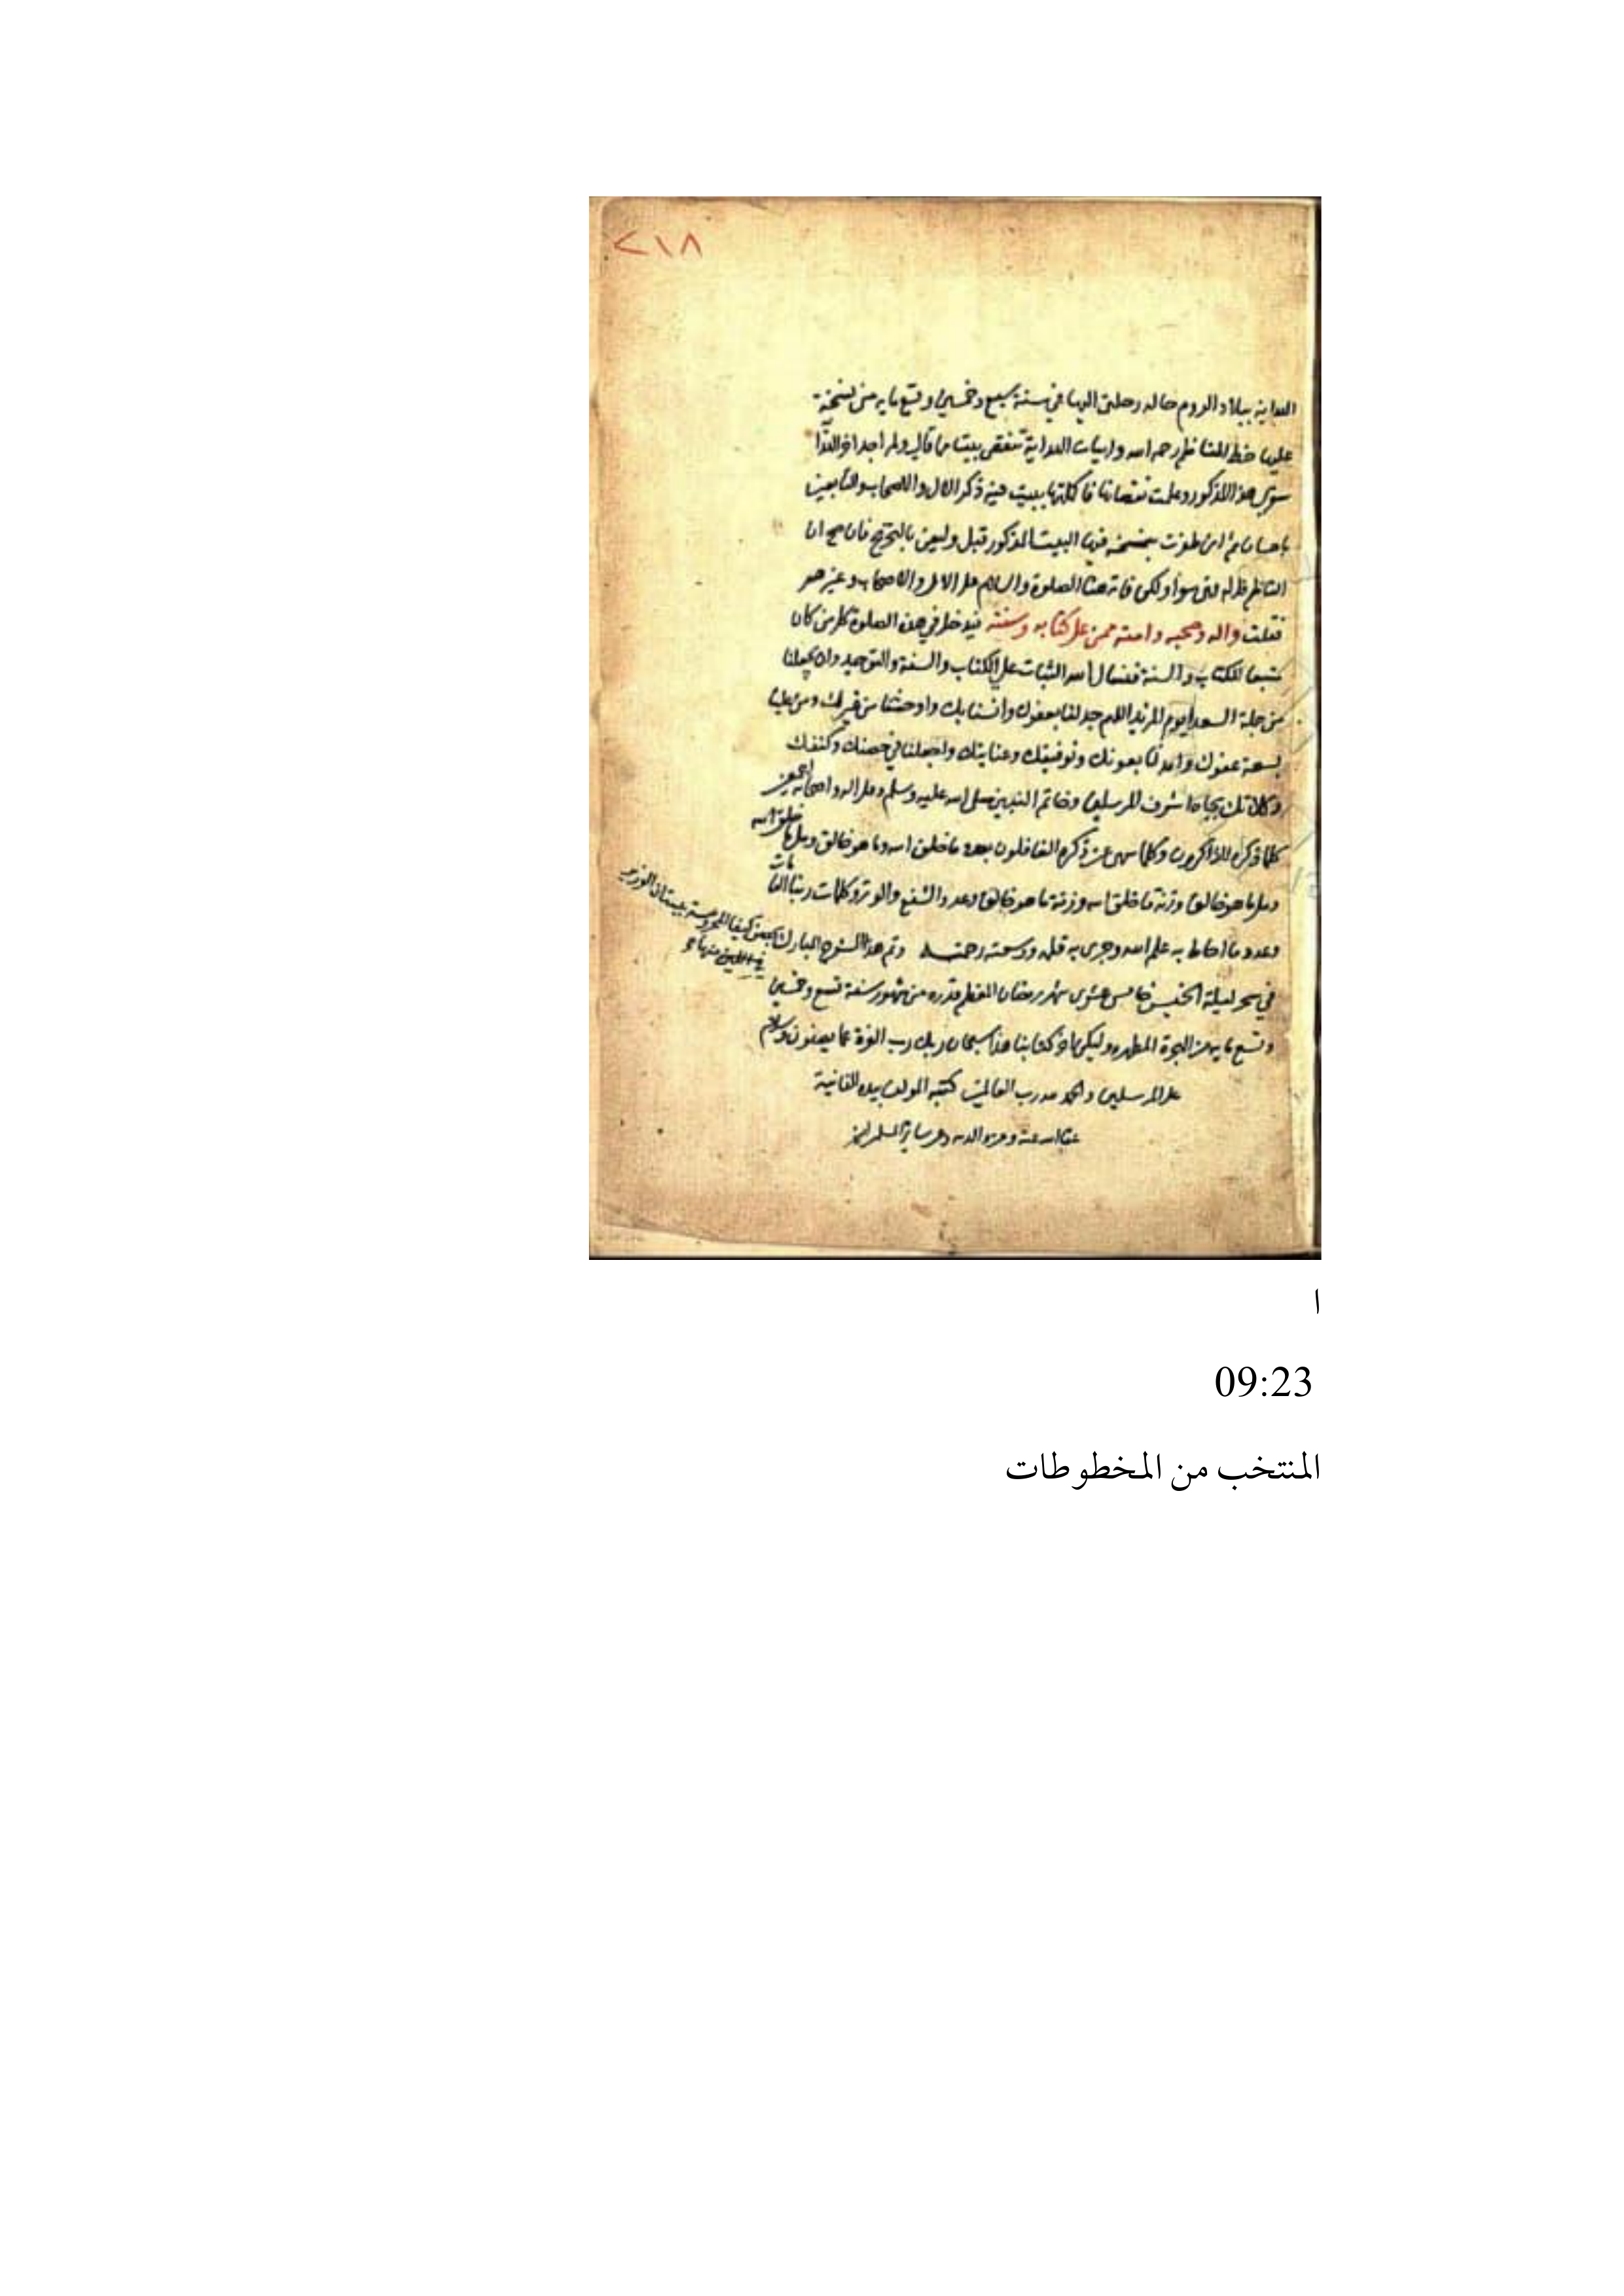 ٢١٨
الهداية ببلاد الروم حال رحلتي اليها في سنة سبع وخمسين وتسع مايه من نسخة
عليها خط الناظم رحمه الله وابيات الهداية تنقص بيتا ما قال ولم اجد
سوى هذا المذكور وعلمت نقصانها فاكملتها ببيت فيه ذكر الال والاصحاب والتابعين
باحسان ثم ان ظفرت بنسخة فيها البيت المذكور قبل وليعن بالتخريج فان صح ان
الناظم والسلام على الال والاصحاب وغيرهم
فقلت واله وصحبه وامته ممن على كتابه وسنته فيدخل في هذه الصلوة كل من كان
متبعا للكتاب والسنة فنسال الله الثبات على الكتاب والسنة والتوحيد وان يجعلنا
من جملة السعدا يوم المزيد اللهم جد لنا بعفوك وانسنا بك واوحشنا من غيرك ومن علينا
بسعة عفوك وامدنا بعونك وتوفيقك وعنايتك واجعلنا في حصنك وكنفك
وكلاتك بجاه اشرف المرسلين وخاتم النبيين صلى الله عليه وسلم وعلى اله واصحابه اجمعين
كلما ذكره الذاكرون وكلما سهى عن ذكره الغافلون بعدد ما خلق الله وما هو خالق وملء ما خلق الله
وملء ما هو خالق وزنة ما خلق الله وزنة ما هو خالق وعدد الشفع والوتر وكلمات ربنا التامات
وعدد ما احاط به علم الله وجرى به قلمه ووسعته رحمته وتم هذا الشرح المبارك بحصن كيفا المحروسة ببستان الوزير
في سحر ليلة الخميس خامس عشرى شهر رمضان المعظم قدره من شهور سنة تسع وخمسين
وتسع مايه من الهجرة المطهره وليكن اخر كتابنا هذا سبحان ربك رب العزة عما يصفون وسلام
على المرسلين والحمد لله رب العالمين كتبه المولف بيده الفانية
عفا الله عنه وعن والديه وعن ساير المسلمين
ا
09:23
المنتخب من المخطوطات